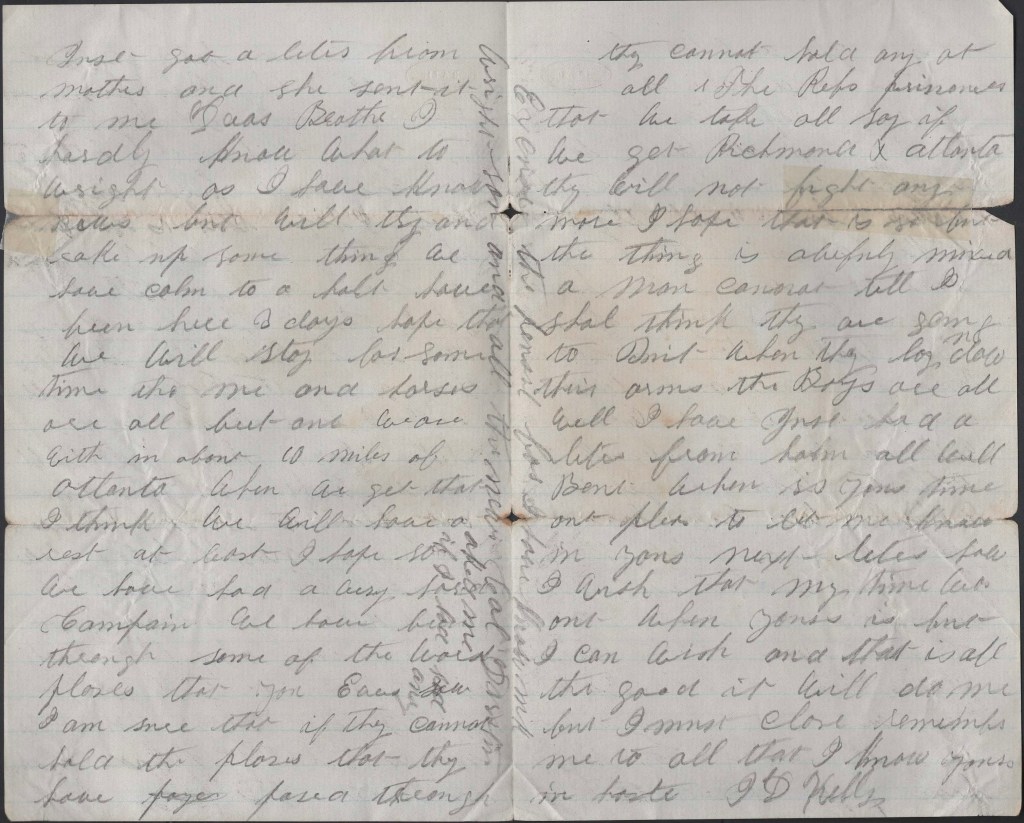 Just got a leter from
mother and she sent it
to me Dear Brother I
hardly know what to
wright as I have know
news but will try and
make up some thing we
have calm to a halt have
been here 3 days hope tha
we will stop for some
time the me and horses
are all beet out we are
with in about 10 miles of
Atlanta when we get that
I think we will have a
rest at least I hope so
we have had a very hard
Campain we have been
through some of the
plases that you Ever saw
I am sure that if they cannot
hold the plases that thy
have pased through
thy cannot hold any at
all The Rebs prisoners
that we take all say if
we get Richmond & atlanta
thy will not fight any
more I hope that is so but
the thing is awfuly mixed
a man cannot tell I
shal think thy are going
to Quit when thy lay down
thir arms the Boys are all
well I have Just had a
leter from halm all well
Bent when is your time
out pleas to let me know
in your next leter how
I wish that my time was
out when yours is but
I can wish and that is all
the good it will do me
but I must close remember
me to all that I know yours
in haste J D Kelly
Wright soon and all the news
Excuse the